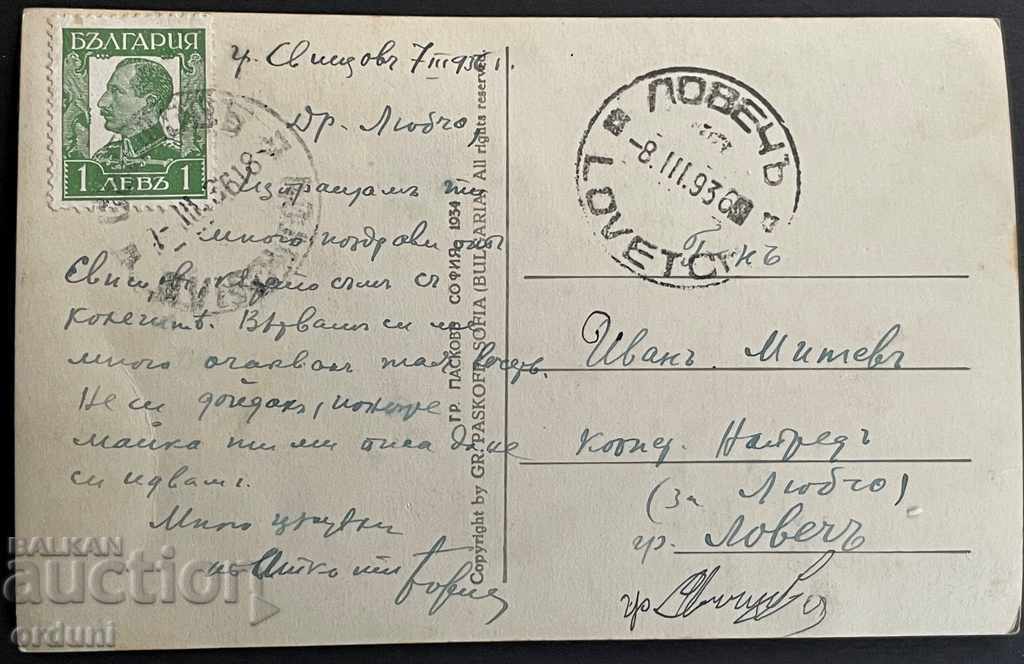 БЪЛГАРИЯ
1 ЛЕВЪ 1
гр. Свищовъ 7 III 936 г.
Др. Любчо,
Изпращамъ ти
много поздрави отъ
Свищовъ, където съмъ съ
колегитѣ. Вѣрвамъ си ме
много очаквалъ тая вечеръ.
Не си дойдохъ, понеже
майка ти ми писа да не
си идвамъ.
Много целувки
отъ
Борис
ГР. ПАСКОВЪ СОФИЯ, 1934
Copyright by GR. PASKOFF, SOFIA (BULGARIA) All rights reserved.
ЛОВЕЧЪ
-8.III.936
LOVETCH
Иванъ Митевъ
кооп. Напредъ
(за Любчо)
гр. Ловечъ
гр.
BALKAN
auction
orduni